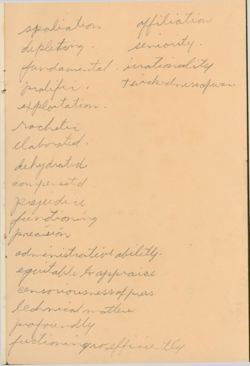 spoliation
depleting.
fundamental.
prolific.
exploitation.
rachetic
elaborated.
dehydrated
compensated
prejudice
functioning
precision
administrative ability.
equitable to appraise
censoriousness of
technical matters
profoundly
efficiently
affiliation
seniority.
irrationality